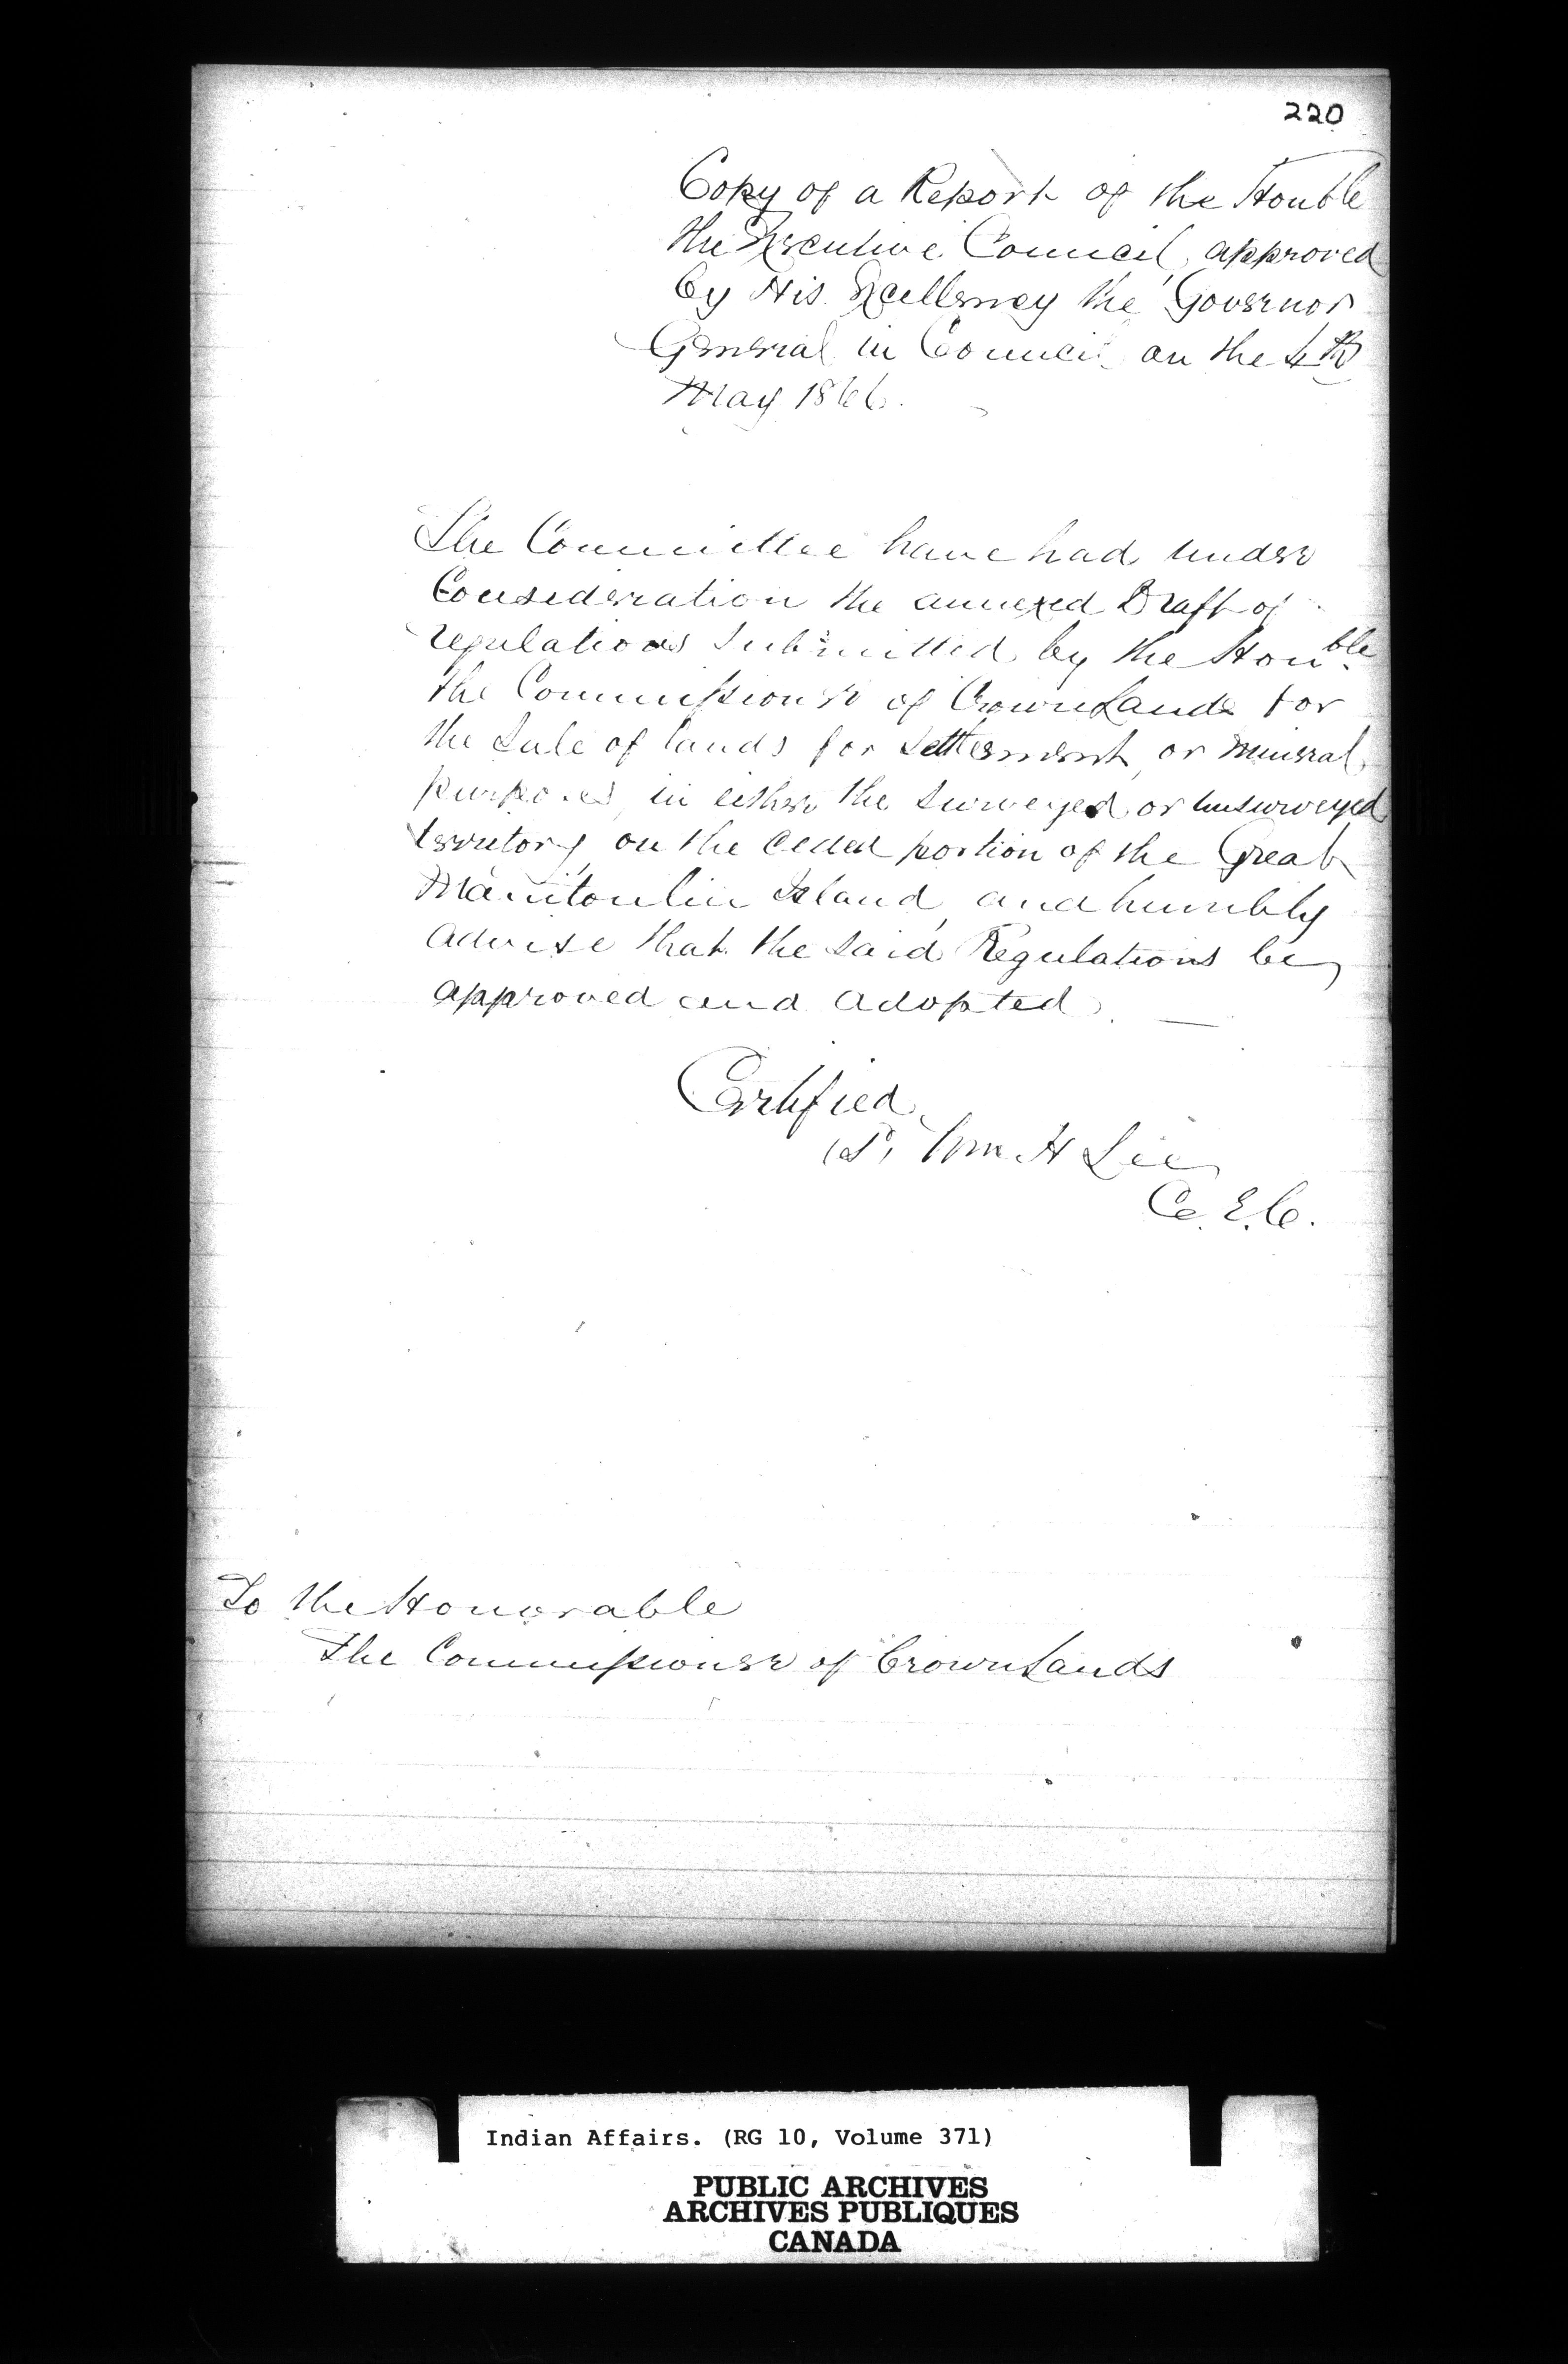 220
Copy of a Report of the Honble
the Executive Council, approved
by His Excellency the Governor
General in Council on the 4th
May 1866.
The Committee have had under
Consideration the annexed Draft of
regulations submitted by the Honble
the Commissioner of Crown Lands for
the Sale of lands for Settlement, or mineral
purposes, in either the surveyed or unsurveyed
territory, on the ceded portion of the Great
Manitoulin Island, and humbly
advise that the said Regulations be
approved and adopted. —
Certified
(S) Wm H Lee
C. E. C.
To the Honorable
The Commissioner of Crown Lands
Indian Affairs. (RG 10, Volume 371)
PUBLIC ARCHIVES
ARCHIVES PUBLIQUES
CANADA